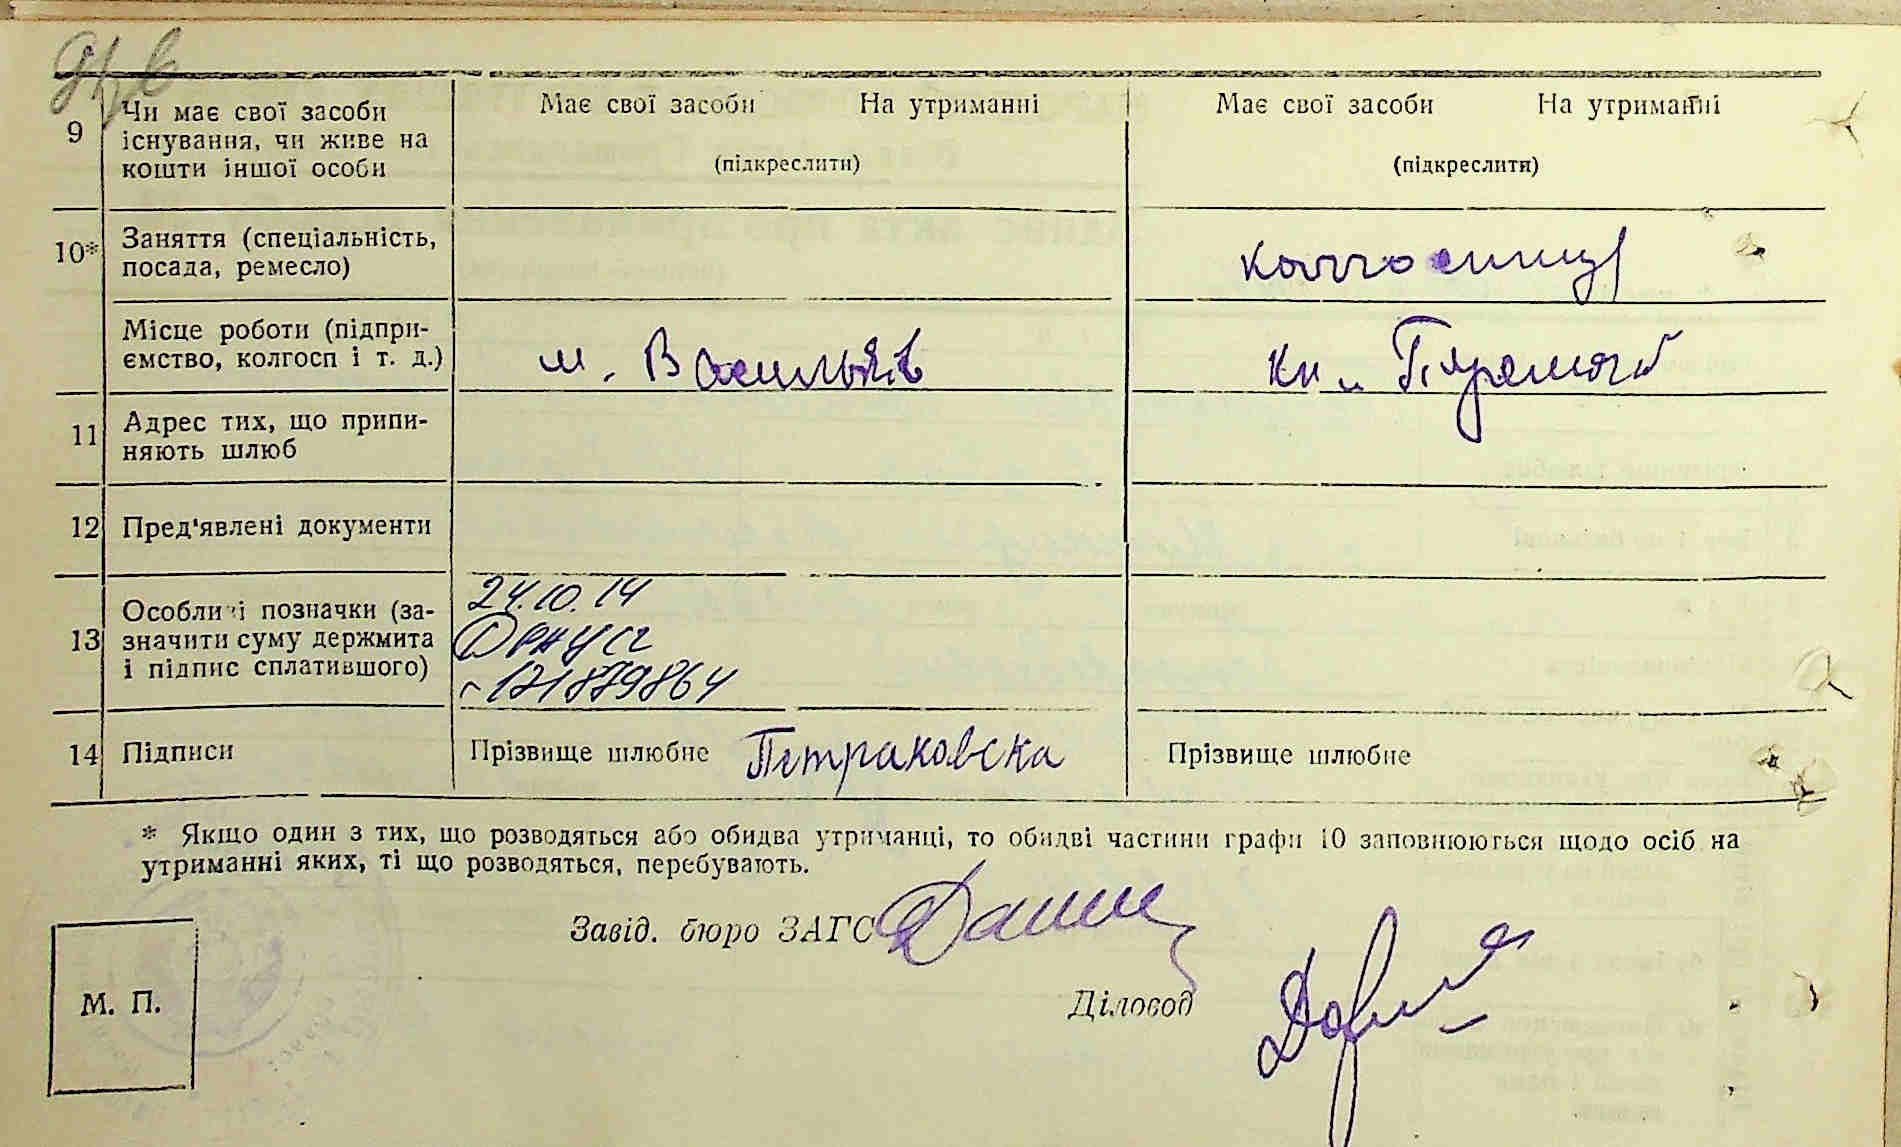 9 Чи має свої засоби існування, чи живе на кошти іншої особи
Має свої засоби На утриманні
(підкреслити)
Має свої засоби На утриманні
(підкреслити)
10* Заняття (спеціальність, посада, ремесло)
Місце роботи (підприємство, колгосп і т. д.)
м. Васильків
11 Адрес тих, що припиняють шлюб
12 Пред'явлені документи
13 Особливі позначки (зазначити суму держмита і підпис сплатившого)
24.10.14
14 Підписи
Прізвище шлюбне Петраковска
Прізвище шлюбне
* Якщо один з тих, що розводяться або обидва утриманці, то обидві частини графи 10 заповнюються щодо осіб на
утриманні яких, ті що розводяться, перебувають.
Завід. бюро ЗАГС
М. П.
Діловод